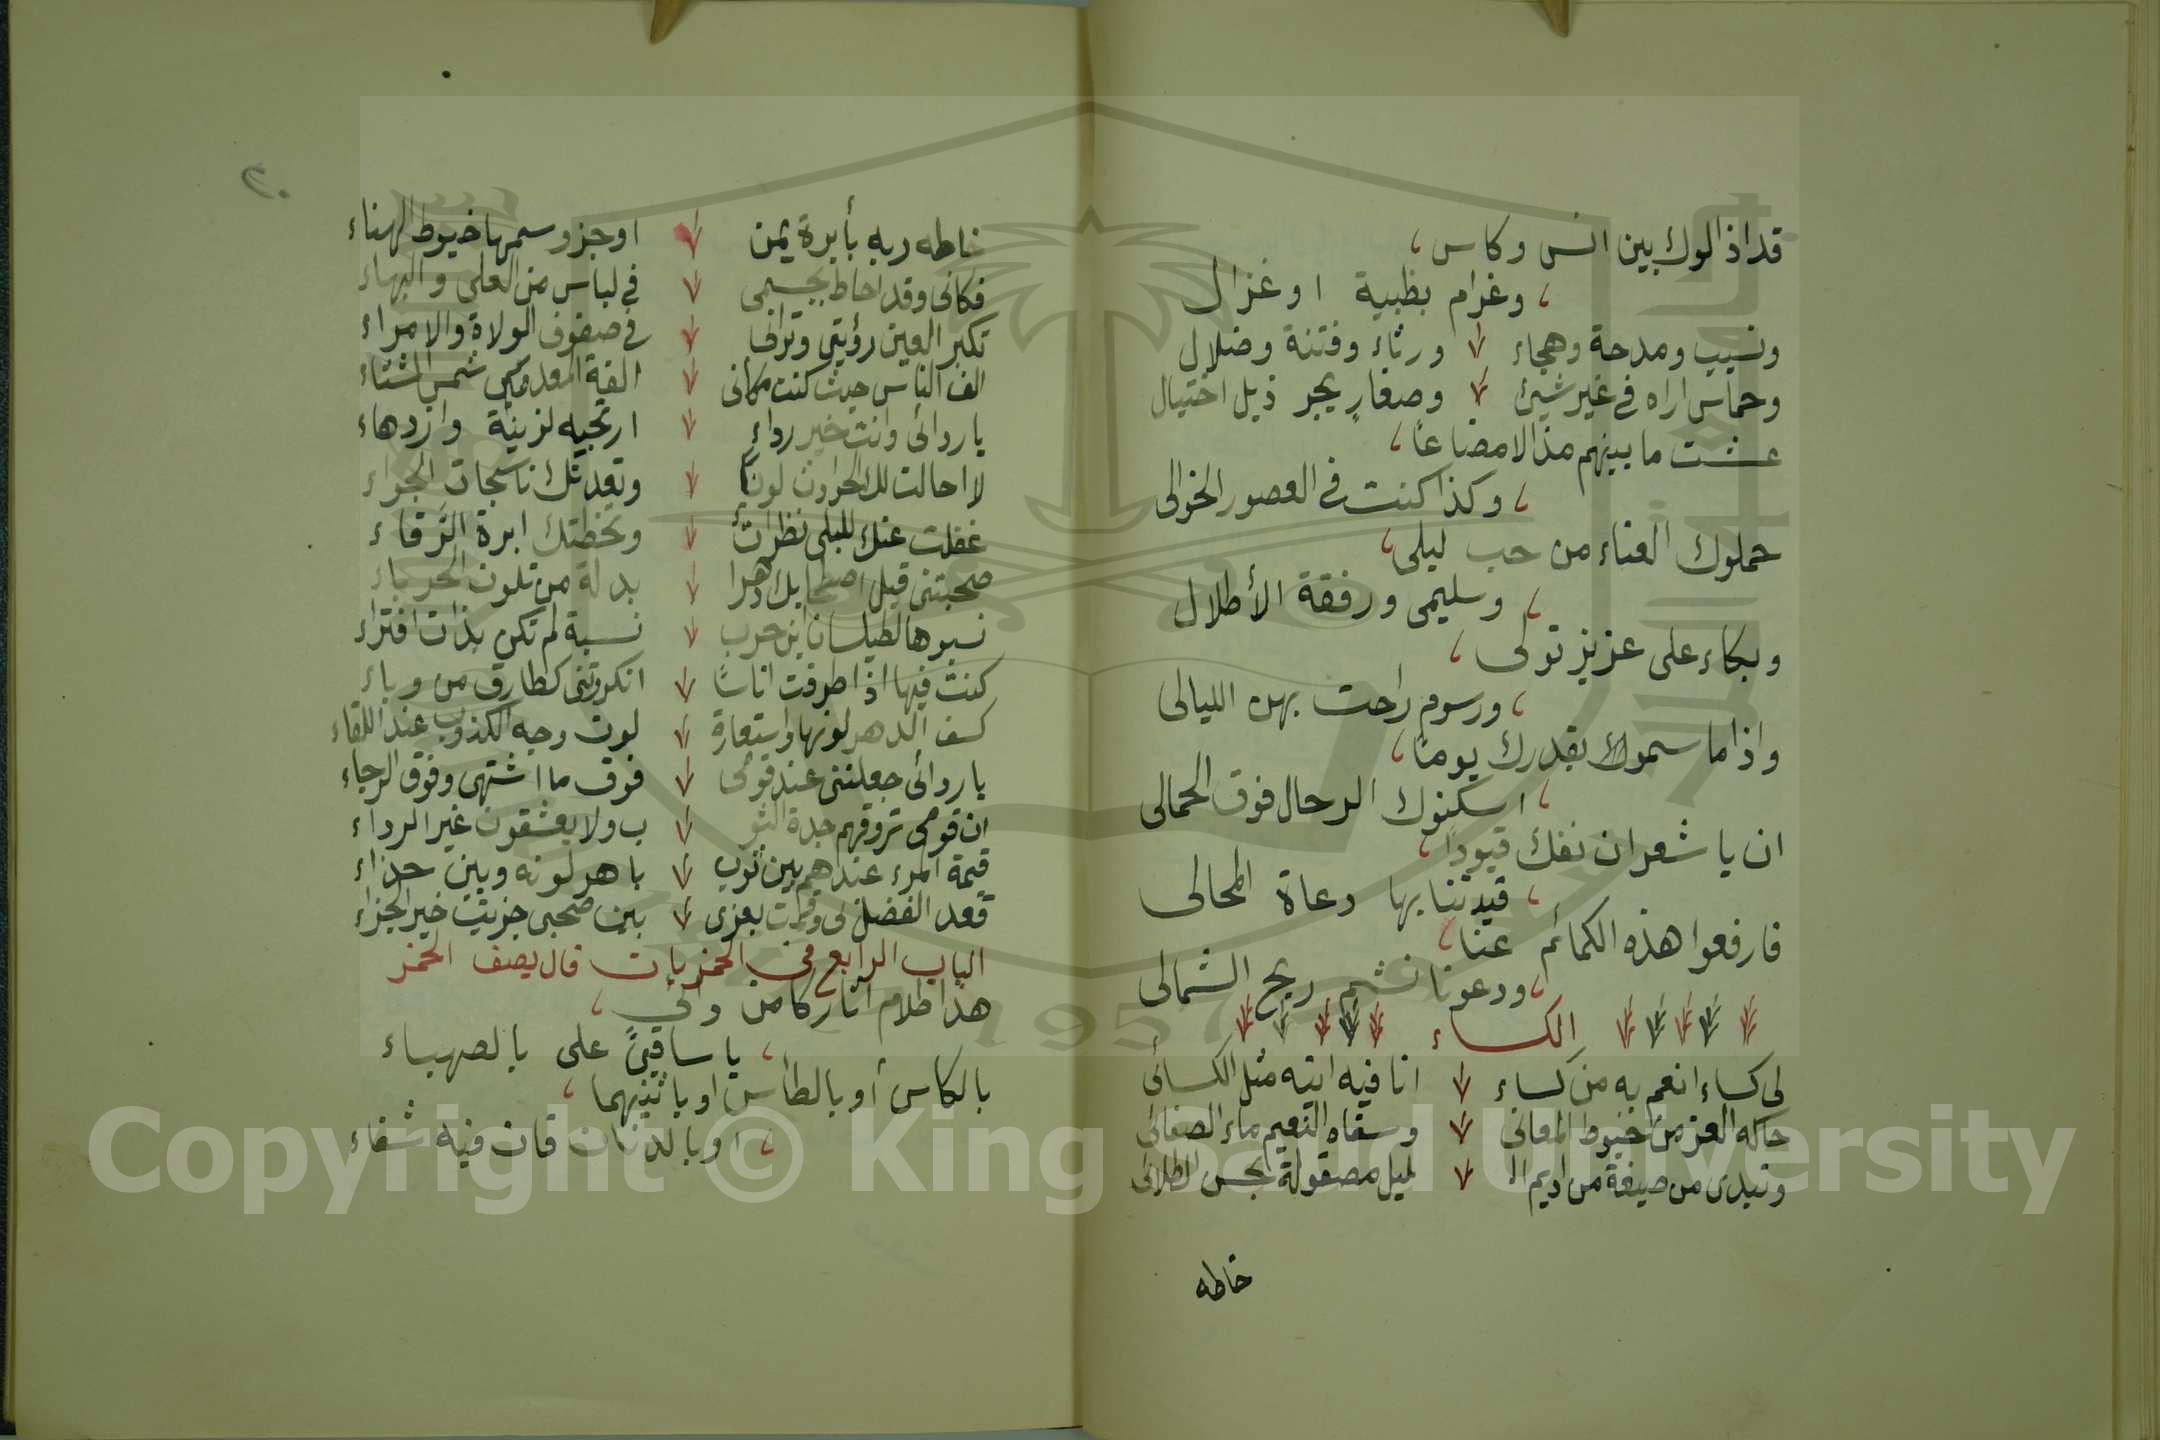 قد اذالوك بين انس وكاس،
، وغرام بظبية او غزال
ونسيب ومدحة وهجاء ورثاء وفتنة وضلال
وحماس اراه في غير شيئ وصغار يجر ذيل اختيال
عشت ما بينهم مذالا مضاعا،
، وكذا كنت في العصور الخوالي
حملوك العناء من حب ليلى،
، وسليمى ورفقة الأطلال
وبكاء على عزيز تولى،
، ورسوم راحت بهن الليالي
واذا ما سموك بقدرك يوما،
، اسكنوك الرحال فوق الجمالي
ان يا شعر ان نفك قيودا،
، قيدتنا بها دعاة المحالي
فارفعوا هذه الكمائم عنا،
، ودعونا نشم ريح الشمالي
الكساء
لي كساء انعم به من كساء انا فيه اتيه مثل الكسائي
حاكه العز من خيوط المعالي وسقاه النعيم ماء الصفائي
وتبدى من صبغة من اديم ال ليل مصقولة بحسن الطلائي
خاطه
٢٠
خاطه ربه بأبرة يمن اوجزو سمها خيوط الهناء
فكاني وقد احاط بجسمي في لباس من العلى والبهاء
تكبر العين رؤيتي وتراني في صفوف الولاة والامراء
الف الناس حيث كنت مكاني الفة المعدمين شمس الشتاء
يا ردائي وانت خير رداء ارتجيه لزينة وازدهاء
لا احالت لك الحوادث لونا وتعدتك ناسجات الجواء
غفلت عنك للبلى نظرات وتخطتك ابرة الرفاء
صحبتني قبل اصطحابك دهرا بدلة من تلون الحرباء
نسبوها لطيلسان ابن حرب نسبة لم تكن بذات افتراء
كنت فيها اذا طرقت اناسا انكروني كطارق من وباء
كسف الدهر لونها واستعارة لون وجه الكذوب عند اللقاء
يا ردائي جعلتني عند قومي فوق ما اشتهى وفوق الرجاء
ان قومي تروقهم جدة الثو ب ولا يعشقون غير الرداء
قيمة المرء عندهم بين ثوب باهر لونه وبين حذاء
قعد الفضل بي وقمت بعزي بين صحبي جزيت خير الجزاء
الباب الرابع في الخمريات قال يصف الخمر
هذا ظلام اثار كامن دائي،
، يا ساقيي على بالصهباء
بالكاس أو بالطاس او باثنيهما،
، او بالدنان فان فيه شفاء
Copyright © King Saud University
1957